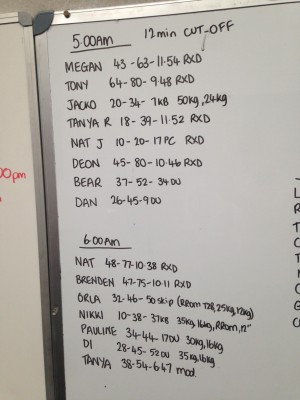 5:00AM 12min CUT-OFF
MEGAN 43-63-11.54 RXD
TONY 64-80-9.48 RXD
JACKO 20-34-7KB 50kg, 24kg
TANYA R 18-39-11.52 RXD
NAT J 10-20-17PC RXD
DEON 45-80-10.46 RXD
BEAR 37-52-34DU
DAN 26-45-9DU
6:00AM
NAT 48-77-10.38 RXD
BRENDEN 47-75-10.11 RXD
ORLA 32-46-50skip (RROM T2B, 25kg, 12kg)
NIKKI 10-38-37KB 35kg, 16kg, RROM, 12"
PAULINE 34-44-17DU 30kg, 16kg
DI 28-45-52DU 35kg, 16kg
TANYA 38-54-6.47 mod.
00pm